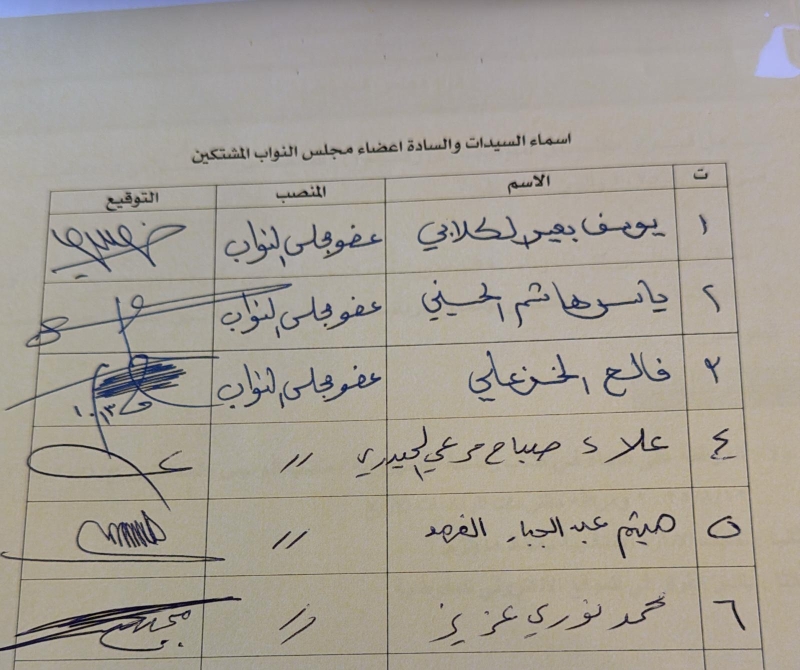 اسماء السيدات والسادة اعضاء مجلس النواب المشتكين
ت الاسم المنصب التوقيع
١ يوسف بعير الكلابي عضو مجلس النواب
٢ ياسر هاشم الحسيني عضو مجلس النواب
٣ فالح الخزعلي عضو مجلس النواب
٤ علاء صباح مرعي الحيدري //
٥ هيثم عبد الجبار الفهد //
٦ محمد نوري عزيز //